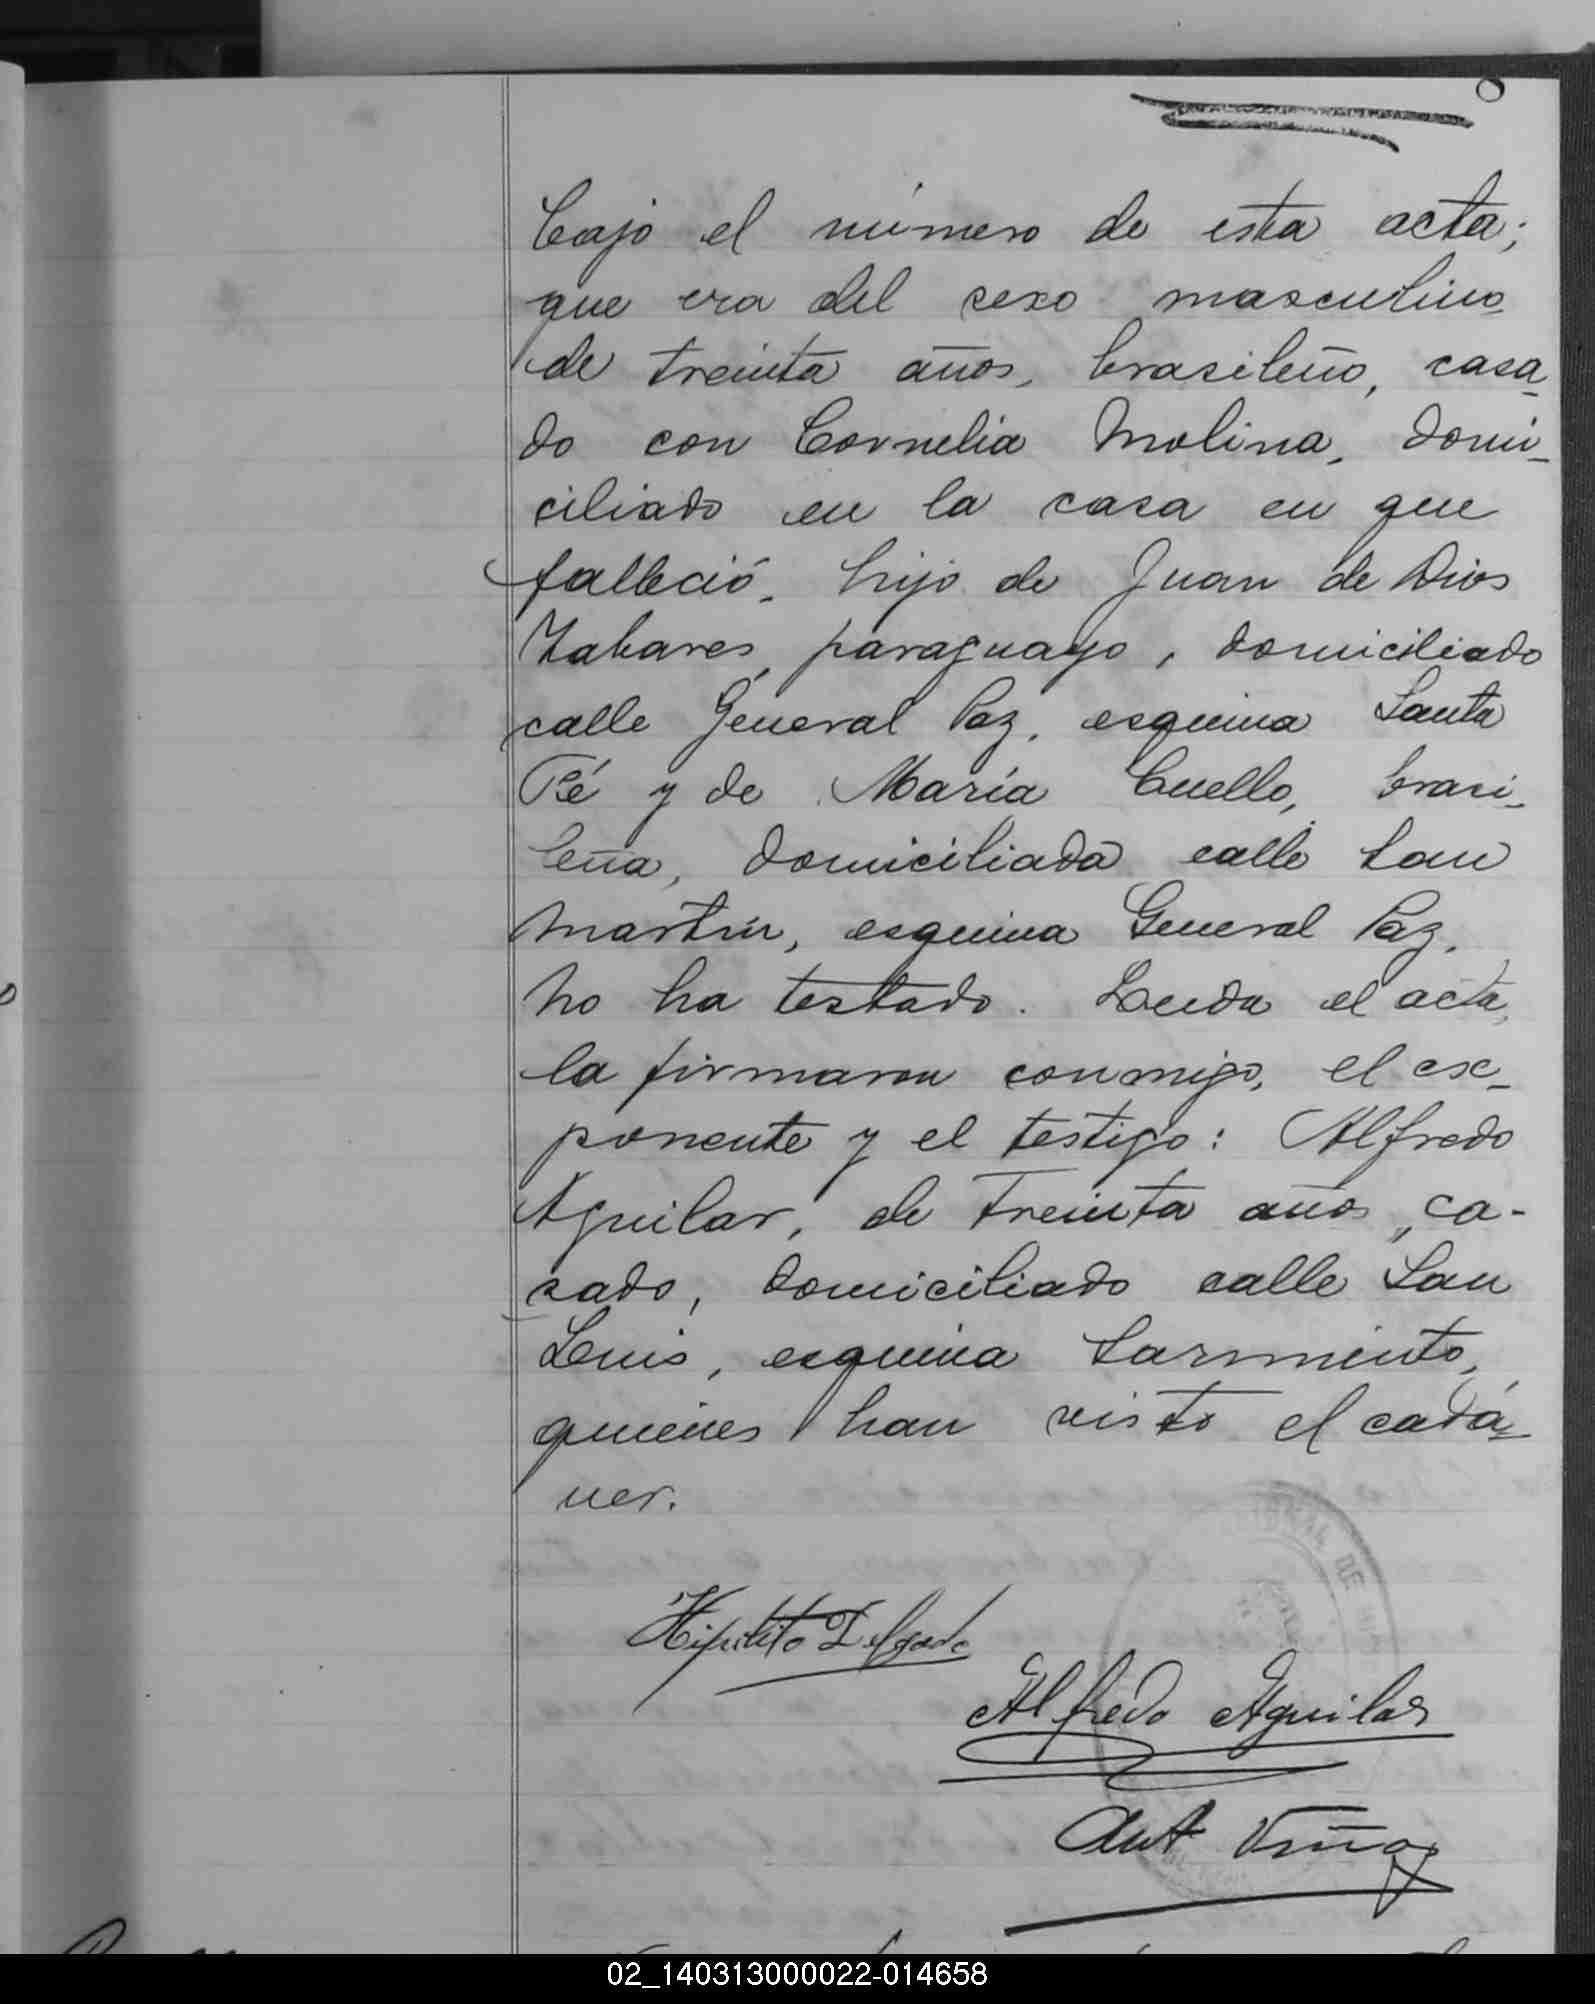 8
bajo el número de esta acta;
que era del sexo masculino
de treinta años, brasileño, casa_
do con Cornelia Molina, domi_
ciliado en la casa en que
falleció, hijo de Juan de Dios
Tabares, paraguayo, domiciliado
calle General Paz, esquina Santa
Fé y de María Cuello, brasi_
leña, domiciliada calle San
Martín, esquina General Paz.
No ha testado. Leida el acta,
la firmaron conmigo, el ex_
ponente y el testigo: Alfredo
Aguilar, de treinta años, ca-
sado, domiciliado calle San
Luis, esquina Sarmiento,
quienes han visto el cadá_
ver.
Hipólito Delgado
Alfredo Aguilar
Ant Viñas
02_140313000022-014658